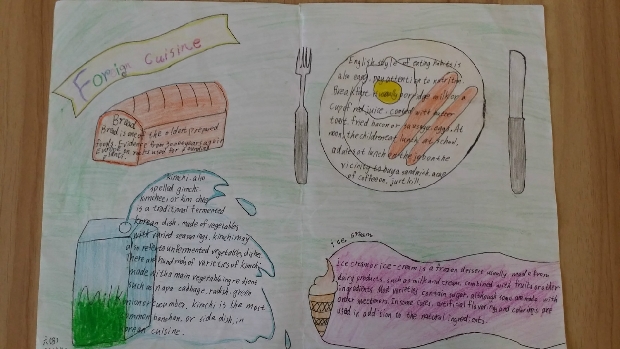 Foreign Cuisine
Bread
Bread is one of the oldest prepared
foods. Evidence from 30,000 years ago in
Europe
plants.
English style of eating habits is
also easy, pay attention to nutrition.
Breakfast is usually porridge, milk or a
cup of red juice, coated with butter
toast, fried bacon or sausage, eggs. At
noon, the children at lunch at school,
adults at lunch on the job on the
vicinity to buy a sandwich, a cup
of coffee
kimchi, also
spelled gimchi,
kimchee, or kim chee,
is a traditional fermented
Korean dish, made of vegetables
with varied seasonings. kimchi may
also refer to unfermented vegetable dishes.
There are hundreds of varieties of kimchi
made with a main vegetable ingredient
such as napa cabbage, radish, green
onion or cucumber. kimchi is the most
common banchan, or side dish, in
cuisine.
ice cream
Ice cream or ice-cream is a frozen dessert usually made from
dairy products, such as milk and cream, combined with fruits or other
ingredients. Most varieties contain sugar, although some are made with
other sweeteners. In some cases, artificial flavorings and colorings are
used in addition to the natural ingredients.